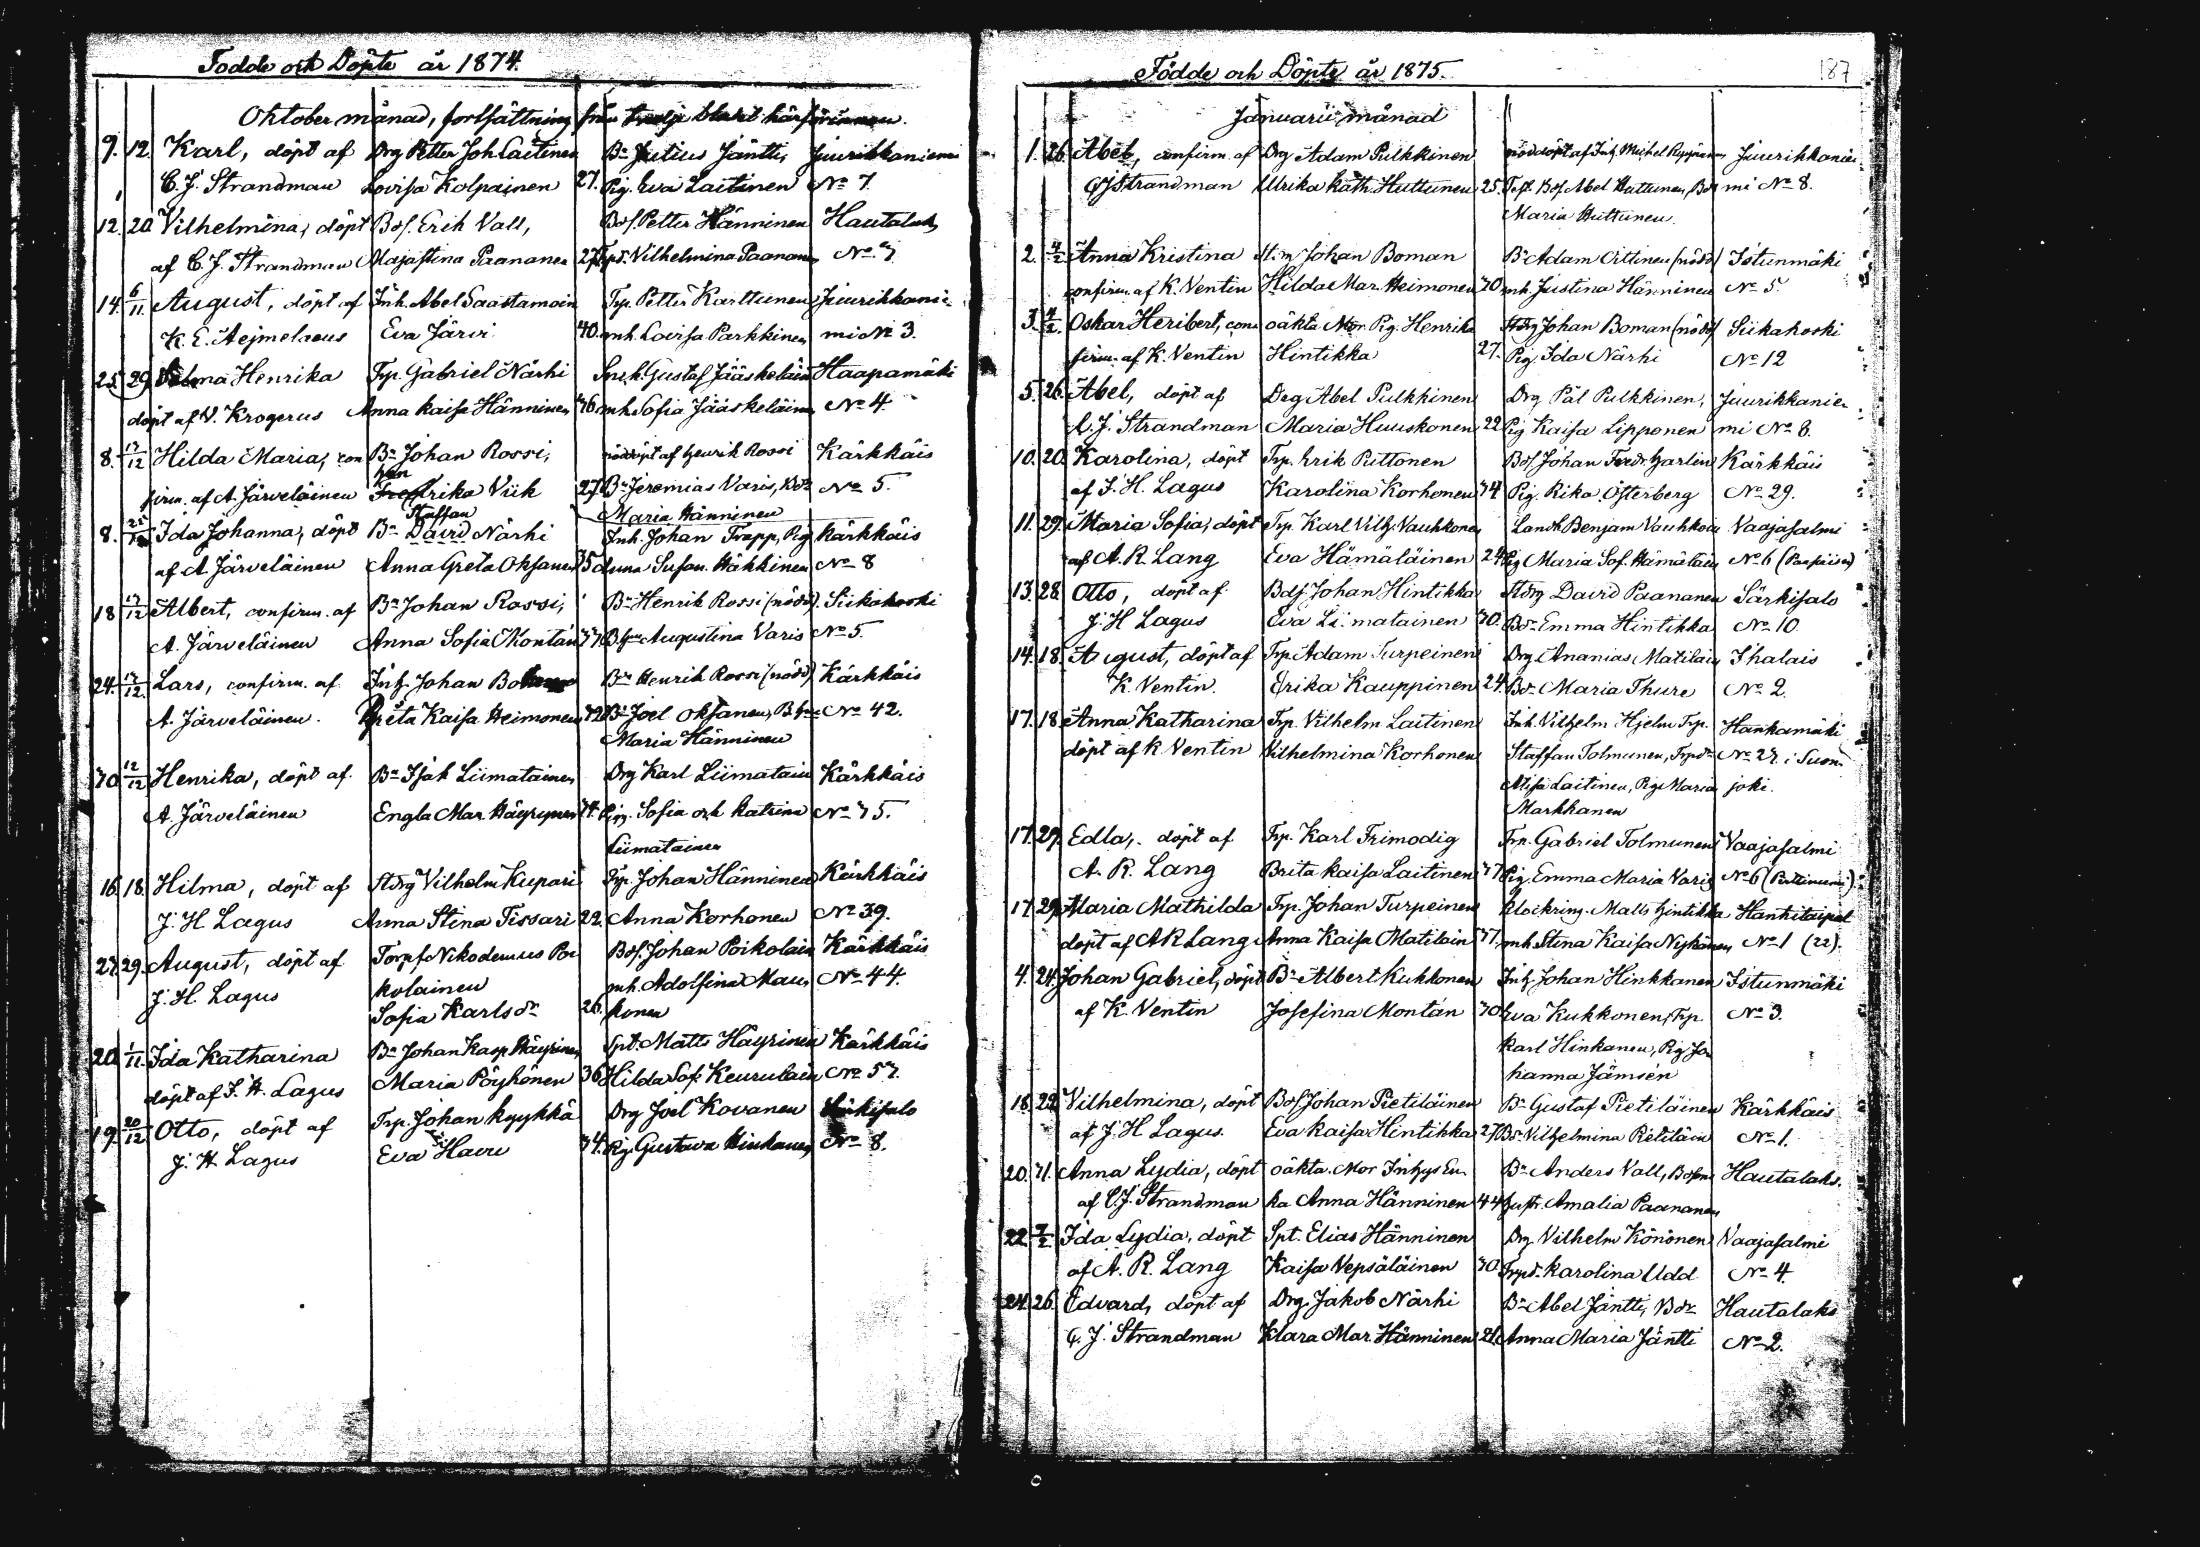 Födde och Döpte år 1874.
Oktober månad, fortsättning från tredje bladet härförinnan.
9. 12. Karl, döpt af Drg Petter Joh Laitinen Bn Julius Jäntti, Juurikkaniemi
C. J. Strandman Lovisa Kolpainen 27. Pig. Eva Laitinen No 7.
12. 20 Vilhelmina, döpt Bos. Erik Vall, Bos. Petter Hänninen Hautalaks
af C. J. Strandman Majastina Paananen 27. Vilhelmina Paananen No 7
14. 6/11. August, döpt af Inh. Abel Saastamoin Trp. Petter Karttunen Juurikkanie
K. E. Aejmelaeus Eva Järvi 40. mh. Lovisa Parkkinen mi No 3.
25. 29. Henrika Trp. Gabriel Närhi Gustaf Jääskeläin Haapamäki
döpt af V. Krogerus Anna Kaisa Hänninen 76. mh. Sofia Jääskeläinen No 4.
8. 17/12 Hilda Maria, con Bn Johan Rossi, nöddöpt af Henrik Rossi Kärkkäis
firm. af A. Järveläinen Fredrika Viik 27. Bn Jeremias Varis, Bdr No 5.
Maria Hänninen
Staffan
8. Ida Johanna, döpt Bn David Närhi Inh. Johan Trapp, Pig Kärkkäis
af A Järveläinen Anna Greta Oksanen 35. Anna Susan. Häkkinen No 8
18 17/12 Albert, confirm. af Bn Johan Rossi, Bn Henrik Rossi (nödd) Siikakoski
A. Järveläinen Anna Sofia Montán 77. Augustina Varis No 5.
24. 17/12. Lars, confirm. af Inh. Johan Bn Henrik Rossi (nödd) Kärkkäis
A. Järveläinen. Greta Kaisa Heimonen 72. Bn Joel Oksanen, No 42.
Maria Hänninen
12/12 Henrika, döpt af Bn Isak Liimatainen Drg Karl Liimatain Kärkkäis
A. Järveläinen Engla Mar. Häyrynen 74. Pig. Sofia och Katrina No 75.
Liimatainen
16. 18. Hilma, döpt af Stdrg Vilhelm Kupari Trp. Johan Hänninen Kärkkäis
J. H Lagus Anna Stina Tissari 22. Anna Korhonen No 39.
27. 29. August, döpt af Torpf. Nikodemus Poi Bos. Johan Poikolain Kärkkäis
J. H. Lagus kolainen mh. Adolfina Maus No 44.
Sofia Karlsdr 26. konen
20. 1/11. Ida Katharina Bn Johan Kasp Häyrinen Spt. Matts Häyrinen Kärkkäis
döpt af J. H. Lagus Maria Pöyhönen 36. Hilda Sof. Keurulain No 57.
19. 20/12 Otto, döpt af Trp. Johan Kyykkä Drg Joel Kovanen Särkisalo
J. H. Lagus Eva Havu 74. Pig. Gustava Hinkanen No 8.
Födde och Döpte år 1875. 187
Januarii månad
1. 26. Abel, confirm. af Drg Adam Pulkkinen nöddöpt af Inh. Michel Juurikkanie
C J Strandman Ulrika Kath. Huttunen 25. Test. Bos. Abel Huttunen, Bdr mi No 8.
Maria Huttunen.
2. 4/2 Anna Kristina Johan Boman Bn Adam Oittinen (nödd) Istunmäki
confirm. af K. Ventin Hilda Mar. Heimonen 70. mh. Justina Hänninen No 5.
3. 4/2. Oskar Heribert, con oäkta Mor. Pig. Henrika Stdrg Johan Boman (nödd) Siikakoski
firm. af K. Ventin Hintikka 27. Pig. Ida Närhi No 12
5. 26. Abel, döpt af Drg Abel Pulkkinen Drg. Pål Pulkkinen, Juurikkanie
C. J. Strandman Maria Huuskonen 22 Pig Kaisa Lipponen mi No 8.
10. 20. Karolina, döpt Trp. Erik Puttonen Bos Johan Ferdr. Hartin Kärkkäis
af J. H. Lagus Karolina Korhonen 74 Pig. Rika Österberg No 29.
11. 29. Maria Sofia, döpt Trp. Karl Vilh. Vauhkonen Landb Benjam Vauhkoin Vaajasalmi
af A. R. Lang Eva Hämäläinen 24. Pig Maria Sof. Hämäläin No 6
13. 28. Otto, döpt af Bos Johan Hintikka Stdrg David Paananen Särkisalo
J. H Lagus Eva Liimatainen 70. Bdr Emma Hintikka No 10.
14. 18. August, döpt af Trp. Adam Turpeinen Drg Ananias Matilain Ihalais
K. Ventin. Erika Kauppinen 24. Bdr Maria Thure No 2.
17. 18. Anna Katharina Trp. Vilhelm Laitinen Inh. Vilhelm Hjelm Trp. Hankamäki
döpt af K Ventin Vilhelmina Korhonen Staffan Tolmunen, Trpdr No 27. i Suon
Misa Laitinen, Pig. Maria joki.
Markkanen
17. 29. Edla, döpt af Trp. Karl Frimodig Trp. Gabriel Tolmunen Vaajasalmi
A. R. Lang Brita Kaisa Laitinen 77. Pig. Emma Maria Varis No 6
17. 29. Maria Mathilda Trp. Johan Turpeinen Klockring. Matts Hintikka Hankitaipal
döpt af A R Lang Anna Kaisa Matilain 77. mh. Stina Kaisa Nyhönen No 1 (22).
4. 24. Johan Gabriel, döpt Bn Albert Kukkonen Inh. Johan Hinkkanen Istunmäki
af K. Ventin Josefina Montán 70. Eva Kukkonen, Trp. No 3.
Karl Hinkanen, Pig Jo
hanna Jämsén
18. 22. Vilhelmina, döpt Bos Johan Pietiläinen Bn Gustaf Pietiläinen Kärkkäis
af J. H Lagus. Eva Kaisa Hintikka 27. Bdr Vilhelmina Pietiläin No 1.
20. 71. Anna Lydia, döpt oäkta. Mor Inhys En Bn Anders Vall, Hautalaks.
af C. J. Strandman ka Anna Hänninen 44. Amalia Paananen
22. 7/2. Ida Lydia, döpt Spt. Elias Hänninen Drg Vilhelm Könönen Vaajasalmi
af A. R. Lang Kaisa Vepsäläinen 70. Trpdr Karolina Udd No 4.
24. 26. Edvard, döpt af Drg. Jakob Närhi Bn Abel Jäntti, Bdr Hautalaks
C. J. Strandman Klara Mar. Hänninen 21. Anna Maria Jäntti No 2.